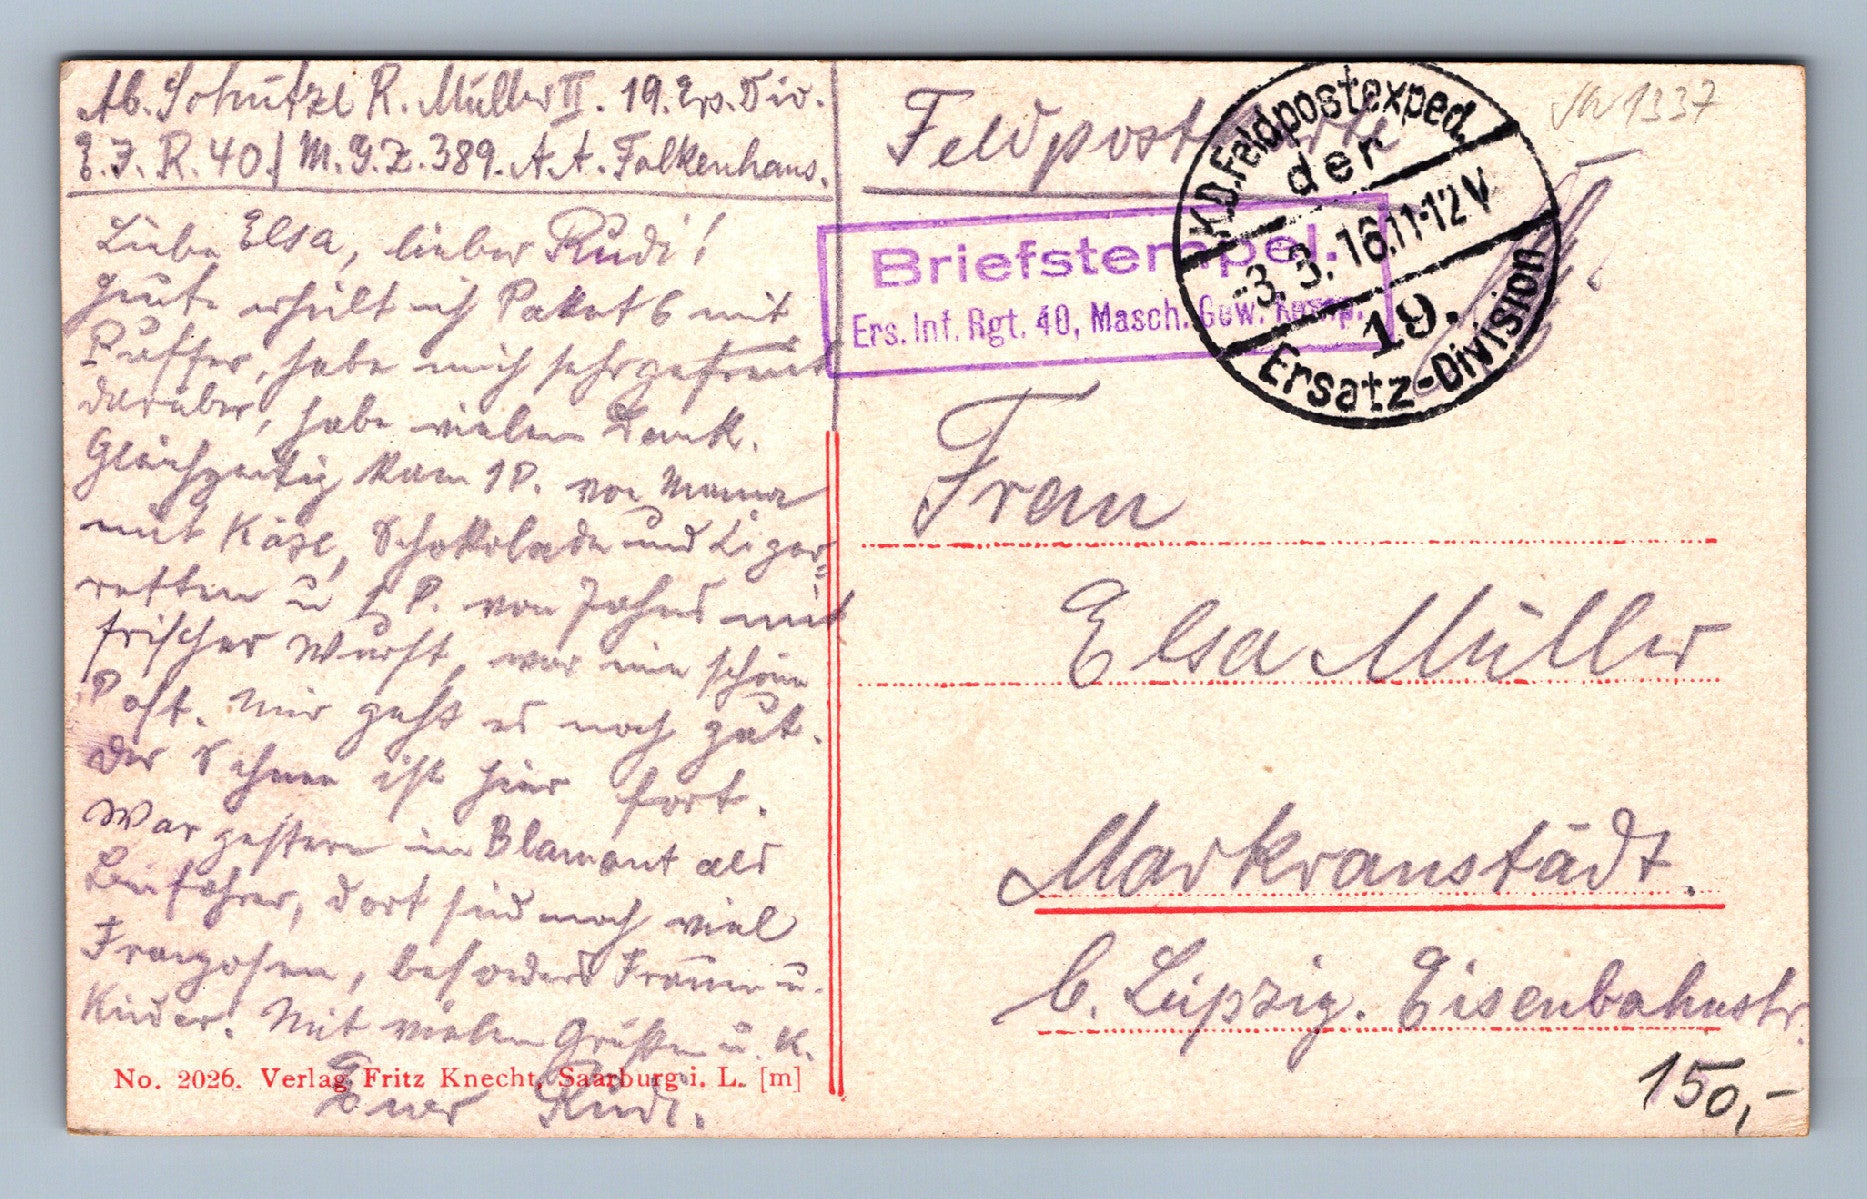 Ab. Schütze R. Müller II. 19. Ers. Div.
E. J. R. 40./ M. G. Z. 389. A. A. Falkenhaus.
Liebe Elsa, lieber Rudi!
heute erhielt ich Paket 6 mit
Puffer, habe mich sehr gefreut
darüber, habe vielen Dank.
Gleichzeitig kam 1 P. von Mama
mit Käse, Schokolade und Zigar=
retten u 1 P. von Jahns mit
frischer Wurst, war eine schöne
Post. Mir geht es noch gut.
Der Schnee ist hier fort.
War gestern in Blamont als
dort sind noch viel
Franzosen, besonders Frauen u.
Kinder. Mit vielen Grüßen u. K.
Euer Rudi.
No. 2026. Verlag Fritz Knecht, Saarburg i. L. [m]
Feldpostkarte
1337
Briefstempel.
Ers. Inf. Rgt. 40, Masch. Gew. Komp.
K.D. Feldpostexped.
der
-3. 3. 16. 11-12 V
19.
Ersatz-Division
Frau
Elsa Müller
Markranstädt.
b. Leipzig. Eisenbahnstr.
150,-